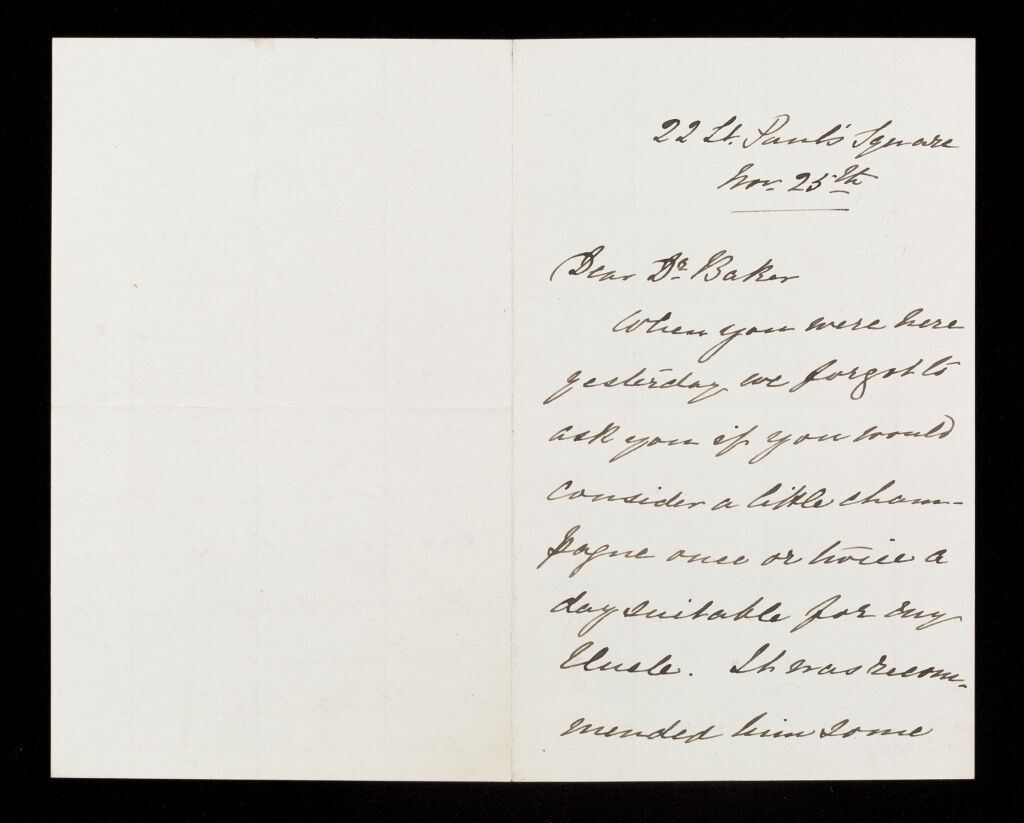 22 St. Paul's Square
Nov. 25th
Dear Dr. Baker
When you were here
yesterday we forgot to
ask you if you would
consider a little cham-
pagne once or twice a
day suitable for my
Uncle. It was recom-
mended him some